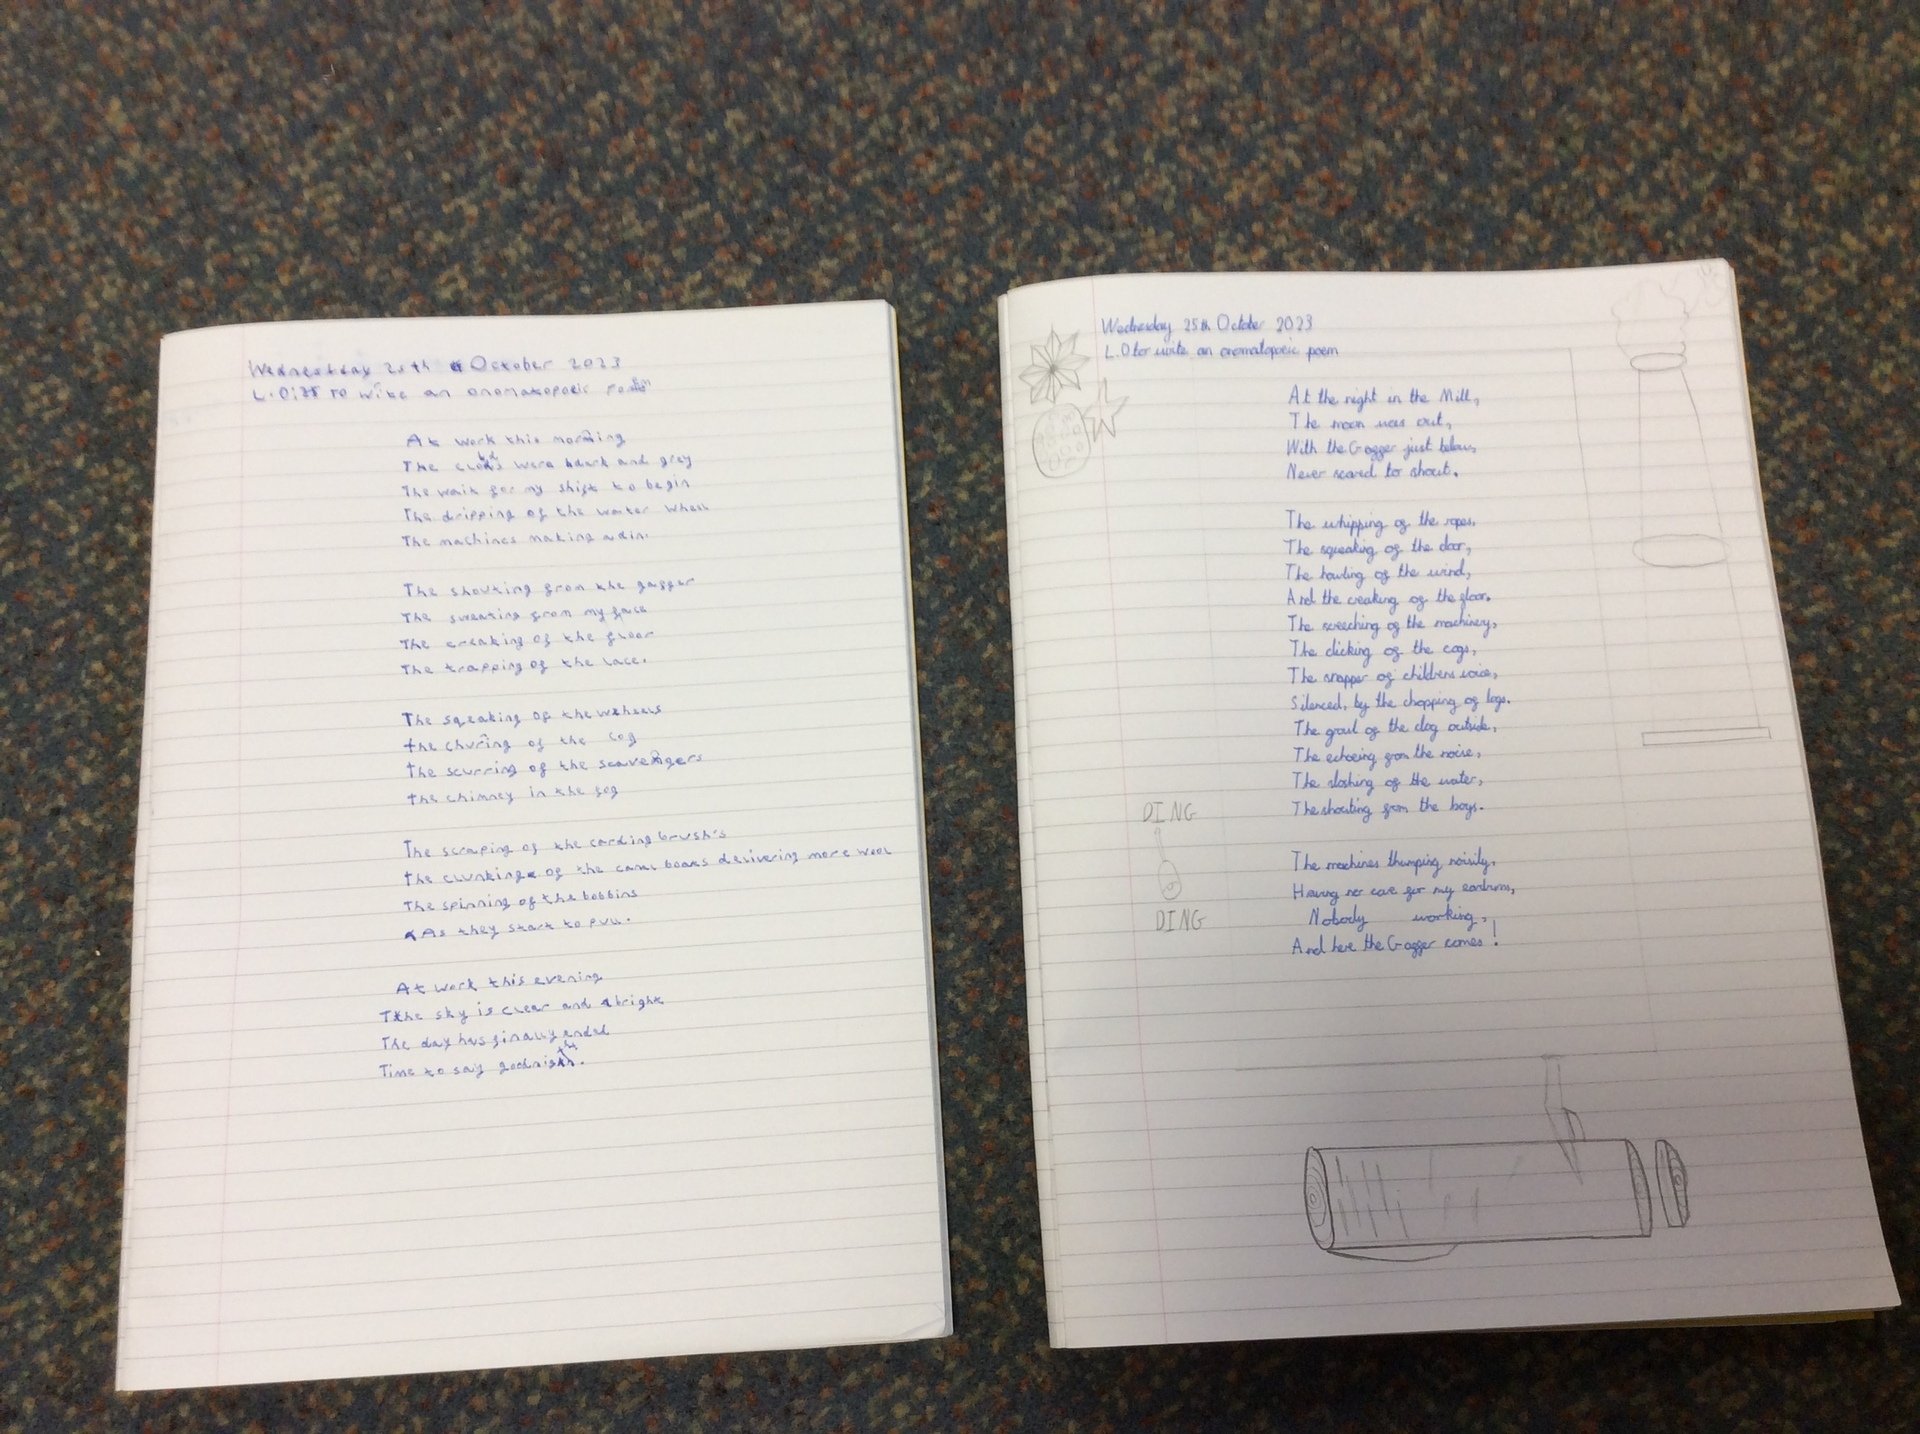 Wednesday 25th October 2023
L.O: to write an onomatopoeic poem
At work this morning
The clouds were dark and grey
The wait for my shift to begin
The dripping of the water wheel
The machines making a din.
The shouting from the gaffer
The sweating from my face
The creaking of the floor
The trapping of the lace.
The squeaking of the wheels
the churing of the cog
The scurring of the scavengers
the chimney in the fog
The scraping of the carding brush's
the clunking of the canal boats delivering more wool
The spinning of the bobbins
As they start to pull.
At work this evening
The sky is clear and bright
The day has finally ended
Time to say goodnight.
Wednesday 25th October 2023
L.O to write an onomatopoeic poem
At the night in the Mill,
The moon was out,
With the Gaffer just below,
Never scared to shout.
The whipping of the ropes,
The squeaking of the door,
The howling of the wind,
And the creaking of the floor.
The screeching of the machinery,
The clicking of the cogs,
The snapper of childrens voice,
Silenced, by the chopping of logs.
The growl of the dog outside,
The echoeing from the noise,
The sloshing of the water,
The shouting from the boys.
DING
DING
The machines thumping noisily,
Having no care for my eardrums,
Nobody working,
And here the Gaffer comes!